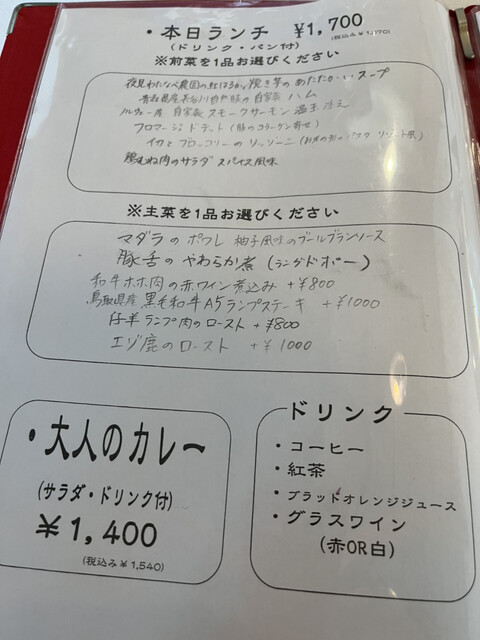 ・本日ランチ ¥1,700
(ドリンク・パン付) (税込み¥1,870)
※前菜を1品お選びください
夜見わたなべ農園の紅はるか 焼き芋のあたたかいスープ
自家製 ハム
ノルウェー産 自家製 スモークサーモン 温玉添え
フロマージュドテット(豚のコラーゲン寄せ)
イカとブロッコリーの
鶏むね肉のサラダ スパイス風味
※主菜を1品お選びください
マダラのポワレ 柚子風味のブールブランソース
豚舌のやわらか煮(ラングドポー)
和牛ホホ肉の赤ワイン煮込み +¥800
鳥取県産 黒毛和牛A5ランプステーキ +¥1000
仔羊ランプ肉のロースト +¥800
エゾ鹿のロースト +¥1000
・大人のカレー
(サラダ・ドリンク付)
¥1,400
(税込み¥1,540)
ドリンク
・コーヒー
・紅茶
・ブラッドオレンジジュース
・グラスワイン
(赤OR白)